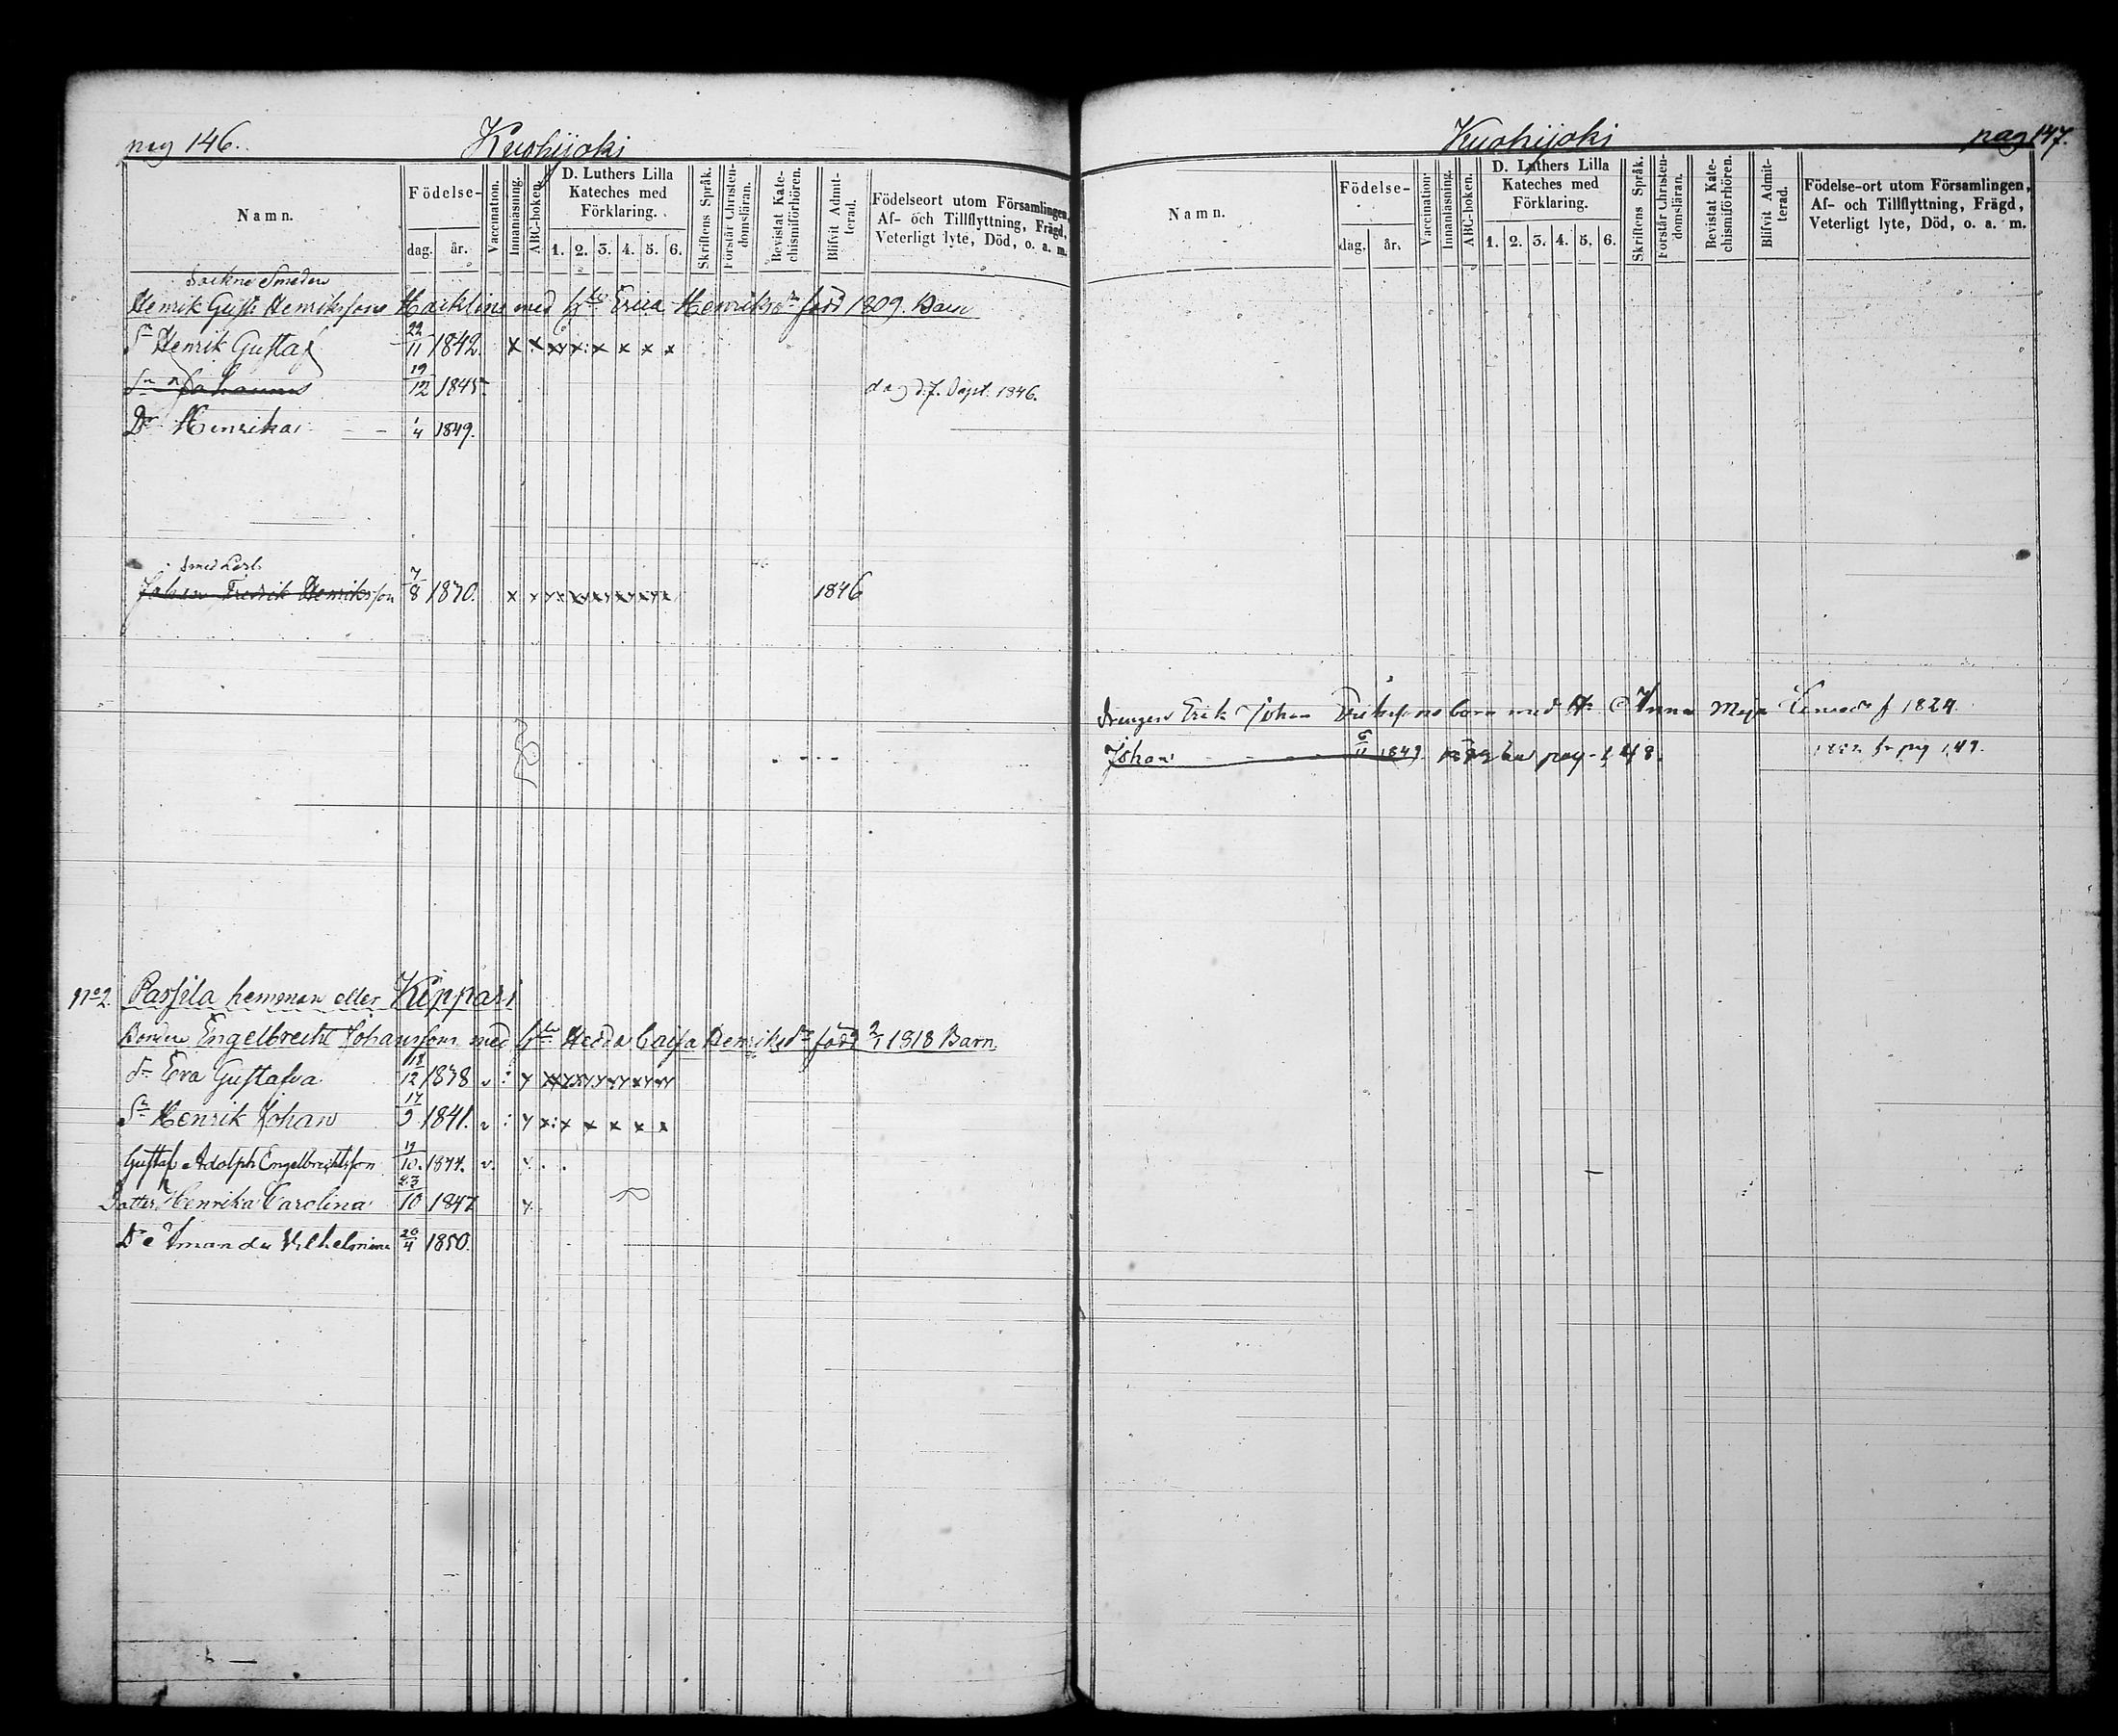 pag 146.
Kuohijoki
Namn.
Födelse-
dag.
år.
Vaccination.
Innanläsning.
ABC-boken.
D. Luthers Lilla
Kateches med
Förklaring.
1. 2. 3. 4. 5. 6.
Skriftens Språk.
Förstår Christen-
domsläran.
Bevistat Kate-
chismiförhören.
Blifvit Admit-
terad.
Födelseort utom Församlingen,
Af- och Tillflyttning, Frägd,
Veterligt lyte, Död, o. a. m.
Sockne Smeden
Henrik Gust: Henrikssons Hacklins med h:u Erica Henriksdr född 1809. Barn
Sn Henrik Gustaf 22/11 1842. x x xx x: x x x x
Sn Johannes 19/12 1845 Sept. 1846.
Dr Henrika 1/4 1849.
Smed Lärl.
Johan Fredrik Henriksson 7/8 1830. x 1846
No 2. Passila hemman eller Kippari
Bonden Engelbrecht Johanssons med h:u Hedda Caisa Henriksdr född 2/1 1818 Barn
Eva Gustafva 18/12 1838
Sn Henrik Johan 17/9 1841.
Gustaf Adolph Engelbrechtsson 19/10. 1844.
Dotter Henrika Carolina 23/10 1847
Dr Amanda Vilhelmina 20/4 1850.
Kuohijoki
pag 147.
Namn.
Födelse-
dag.
år.
Vaccination.
Innanläsning.
ABC-boken.
D. Luthers Lilla
Kateches med
Förklaring.
1. 2. 3. 4. 5. 6.
Skriftens Språk.
Förstår Christen-
domsläran.
Bevistat Kate-
chismiförhören.
Blifvit Admit-
terad.
Födelse-ort utom Församlingen,
Af- och Tillflyttning, Frägd,
Veterligt lyte, Död, o. a. m.
Drengen Erik Johan barn med Anna Maja f 1824
Johan 6/11 1849 pag 148. pag 149.